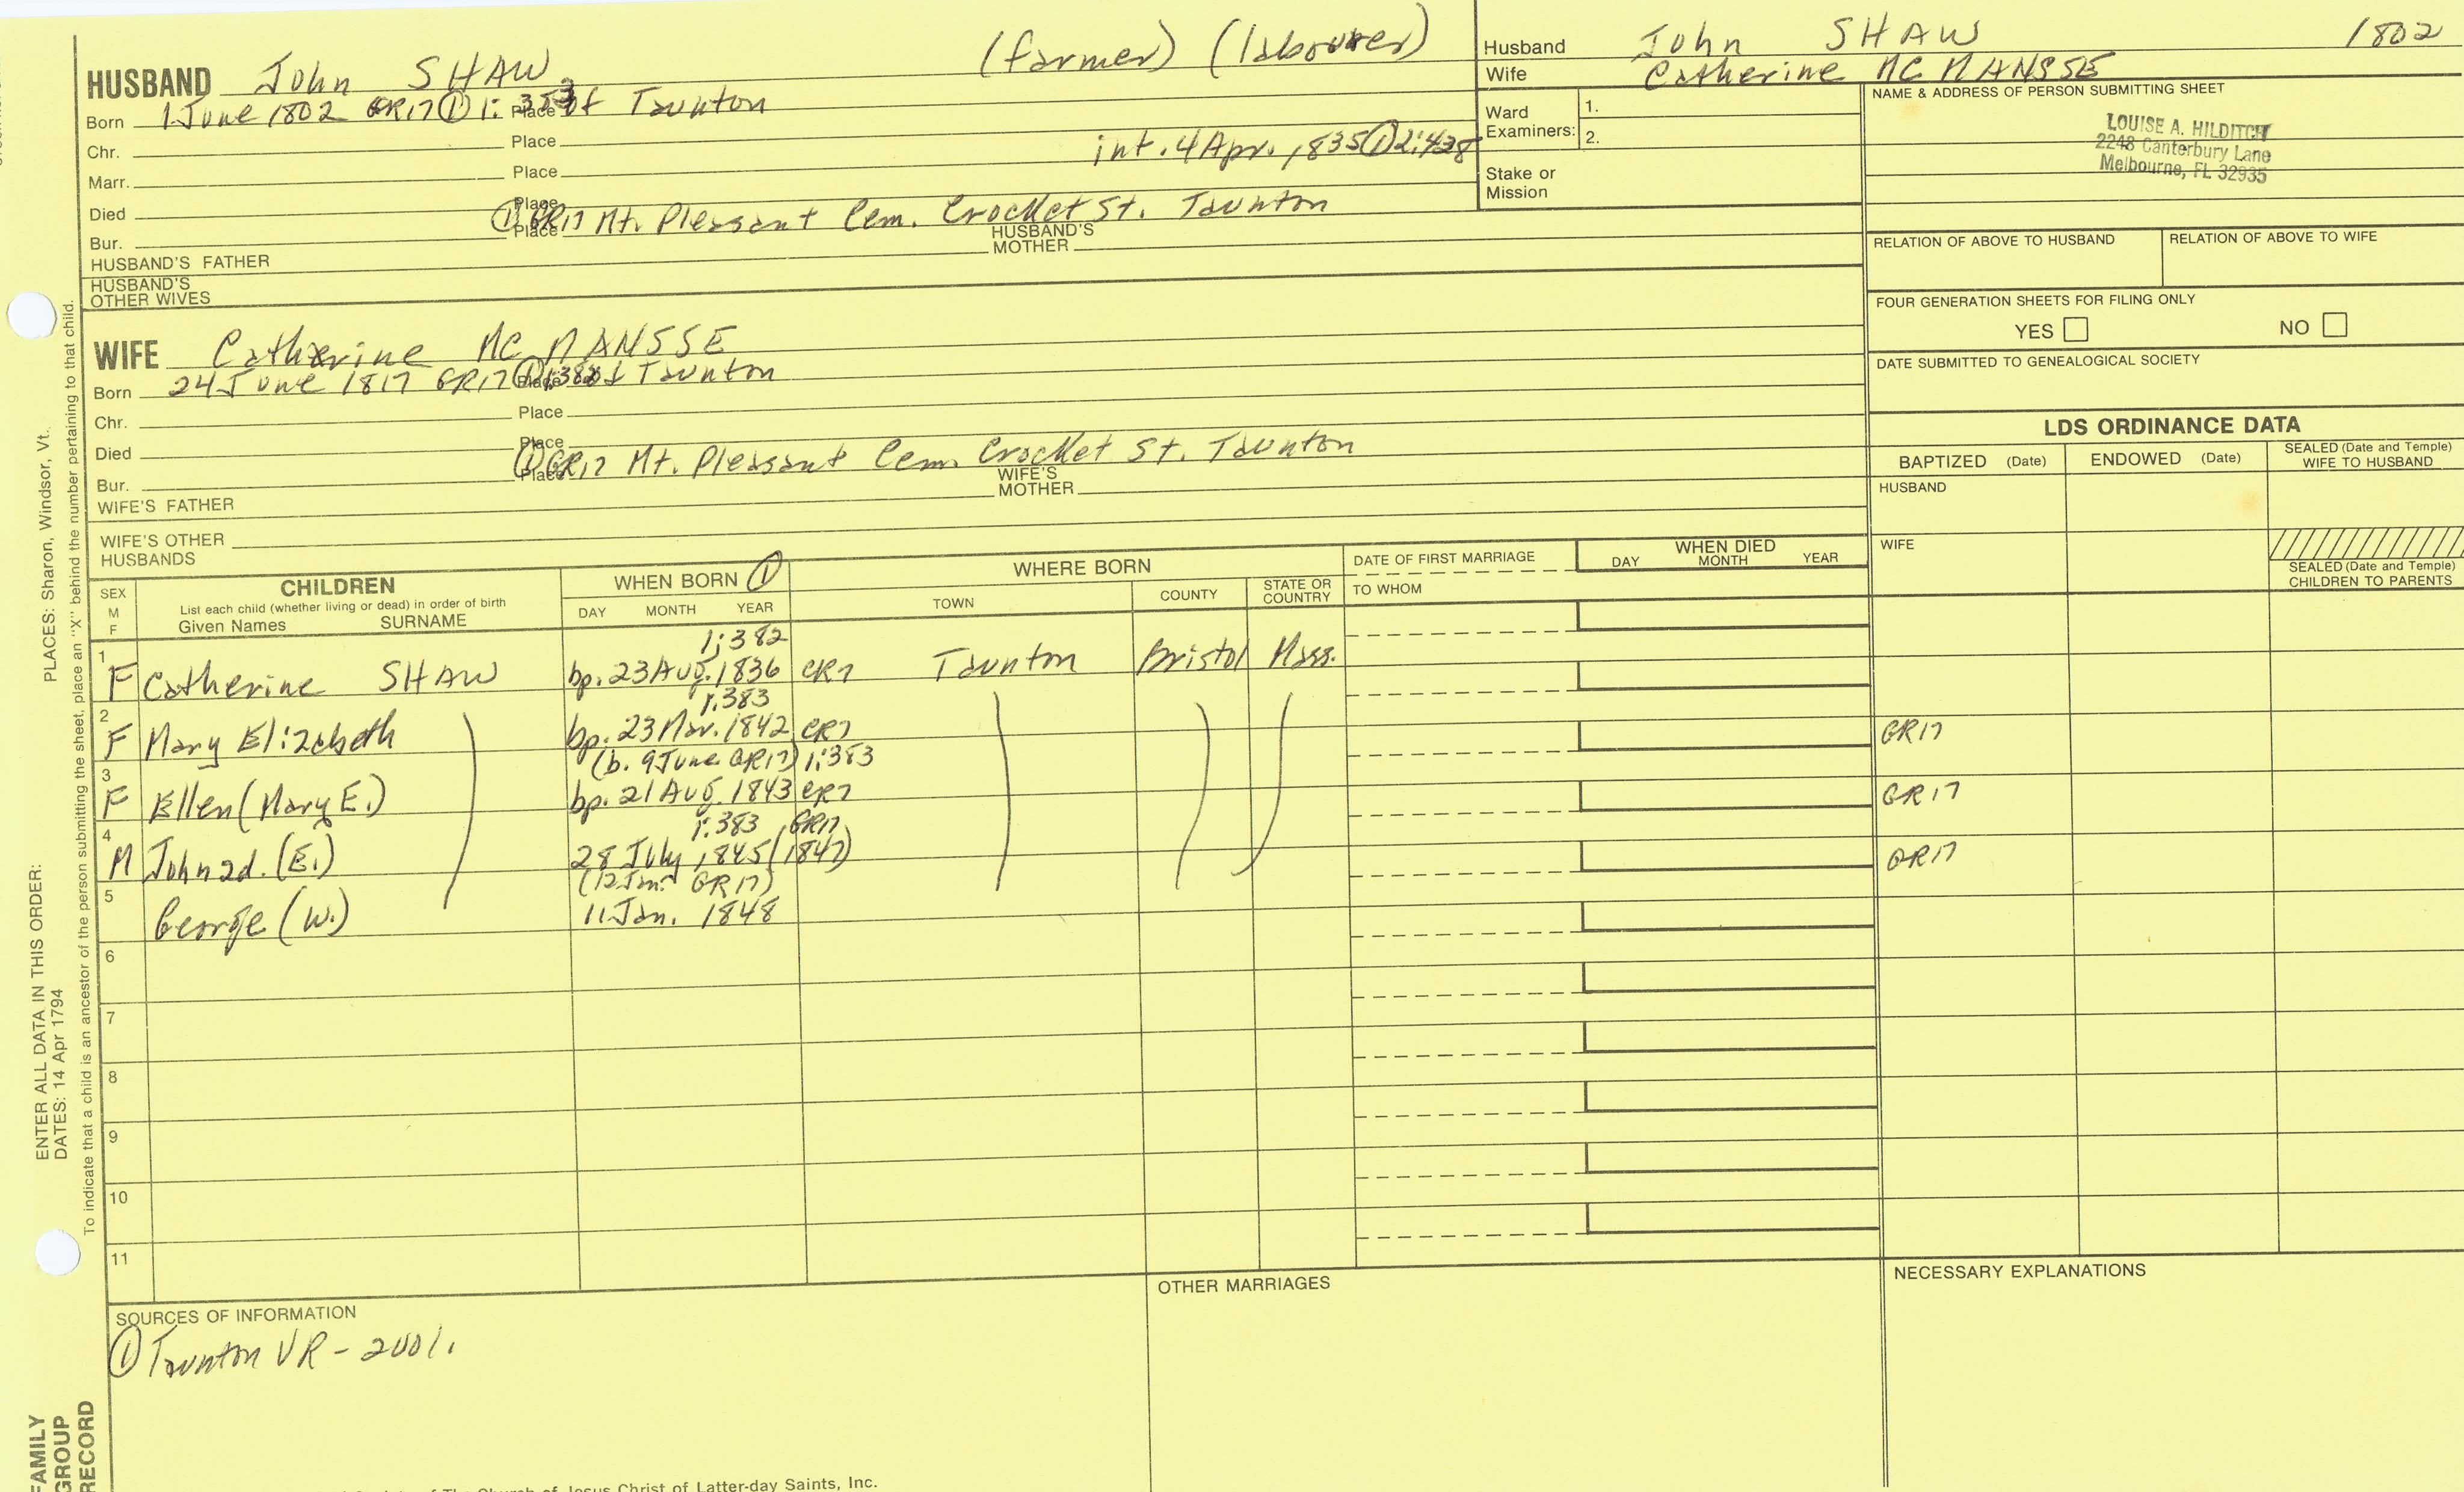 (farmer) (labourer)
HUSBAND John SHAW
Born 1 June 1802 GR17 ① 1:383 Place of Taunton
Chr. Place
int. 4 Apr. 1835 ① 2:428
Marr. Place
Died Place
① GR17 Mt. Pleasant Cem. Crocket St. Taunton
Bur. Place
HUSBAND'S FATHER
HUSBAND'S MOTHER
HUSBAND'S OTHER WIVES
WIFE Catherine MC MANSSE
Born 24 June 1817 GR17 ① 1:382 Place of Taunton
Chr. Place
Died Place
① GR17 Mt. Pleasant Cem. Crocket St. Taunton
Bur. Place
WIFE'S FATHER
WIFE'S MOTHER
WIFE'S OTHER HUSBANDS
Husband John SHAW 1802
Wife Catherine MC MANSSE
Ward Examiners: 1.
2.
Stake or Mission
NAME & ADDRESS OF PERSON SUBMITTING SHEET
LOUISE A. HILDITCH
2248 Canterbury Lane
Melbourne, FL 32935
RELATION OF ABOVE TO HUSBAND
RELATION OF ABOVE TO WIFE
FOUR GENERATION SHEETS FOR FILING ONLY
YES NO
DATE SUBMITTED TO GENEALOGICAL SOCIETY
LDS ORDINANCE DATA
BAPTIZED (Date)
ENDOWED (Date)
SEALED (Date and Temple)
WIFE TO HUSBAND
HUSBAND
WIFE
SEALED (Date and Temple)
CHILDREN TO PARENTS
SEX
M
F
CHILDREN
List each child (whether living or dead) in order of birth
Given Names SURNAME
WHEN BORN ①
DAY MONTH YEAR
WHERE BORN
TOWN
COUNTY
STATE OR COUNTRY
DATE OF FIRST MARRIAGE
TO WHOM
WHEN DIED
DAY MONTH YEAR
1:382
1 F Catherine SHAW bp. 23 Aug. 1836 CR7 Taunton Bristol Mass.
1:383
2 F Mary Elizabeth bp. 23 Mar. 1842 CR7 GR17
(b. 9 June GR17) 1:383
3 F Ellen (Mary E.) bp. 21 Aug. 1843 CR7 GR17
1:383 GR17
4 M John 2d. (E.) 28 July 1845 (1847) GR17
(12 Jan. GR17)
5 George (W.) 11 Jan. 1848
6
7
8
9
10
11
SOURCES OF INFORMATION
① Taunton VR - 2 vol.
OTHER MARRIAGES
NECESSARY EXPLANATIONS
ENTER ALL DATA IN THIS ORDER:
DATES: 14 Apr 1794
PLACES: Sharon, Windsor, Vt.
To indicate that a child is an ancestor of the person submitting the sheet, place an "X" behind the number pertaining to that child.
FAMILY
GROUP
RECORD
of The Church of Jesus Christ of Latter-day Saints, Inc.